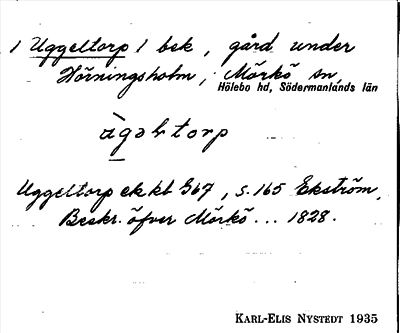 / Uggeltorp / bek, gård under
Hörningsholm, Mörkö sn,
Hölebo hd, Södermanlands län
àgəltorp
Uggeltorp ek kb 567, s. 165 Ekström,
Beskr. öfver Mörkö ... 1828.
KARL-ELIS NYSTEDT 1935